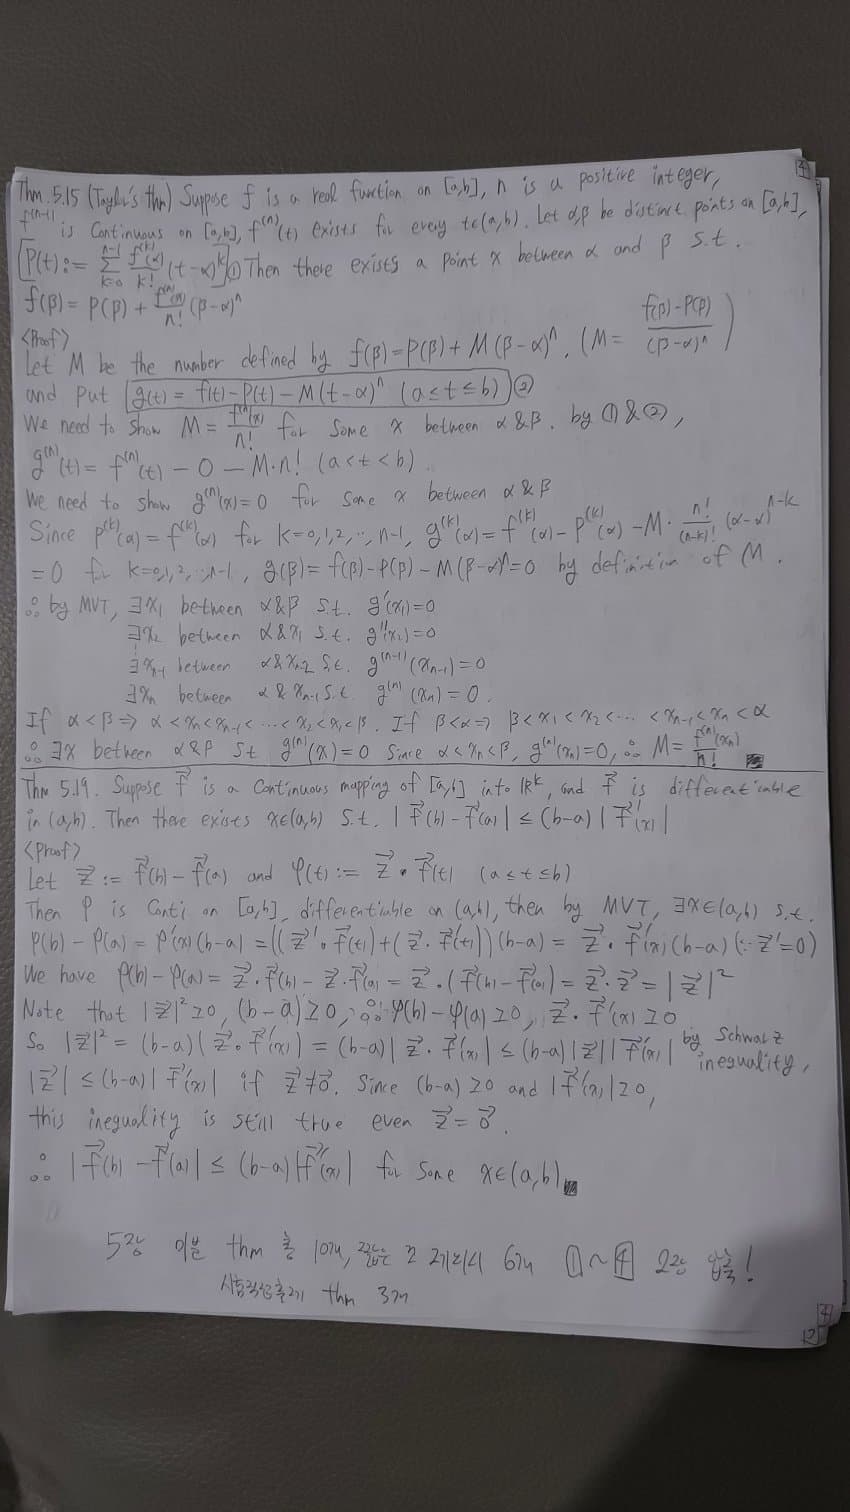 4
Thm 5.15 (Taylor's thm) Suppose f is a real function on [a,b], n is a positive integer,
f^(n-1) is Continuous on [a,b], f^(n)(t) exists for every t∈(a,b). Let α,β be distinct points on [a,b],
[P(t):= Σ_{k=0}^{n-1} f^(k)(α)/k! (t-α)^k]① Then there exists a point x between α and β s.t.
f(β) = P(β) + f^(n)(x)/n! (β-α)^n
<Proof>
Let M be the number defined by f(β)=P(β)+M(β-α)^n. (M= (f(β)-P(β))/(β-α)^n)
and put [g(t) = f(t)-P(t)-M(t-α)^n (a≤t≤b)]②
We need to show M= f^(n)(x)/n! for some x between α&β. by ①&②,
g^(n)(t)= f^(n)(t) - 0 - M·n! (a<t<b).
We need to show g^(n)(x)=0 for some x between α&β
Since P^(k)(α)=f^(k)(α) for k=0,1,2,…,n-1, g^(k)(α)=f^(k)(α)-P^(k)(α)-M· n!/(n-k)! (α-α)^{n-k}
=0 for k=0,1,2,…,n-1, g(β)=f(β)-P(β)-M(β-α)^n=0 by definition of M.
∴ by MVT, ∃x₁ between α&β s.t. g'(x₁)=0
∃x₂ between α&x₁ s.t. g''(x₂)=0
⋮
∃x_{n-1} between α&x_{n-2} s.t. g^(n-1)(x_{n-1})=0
∃x_n between α & x_{n-1} s.t. g^(n)(x_n) = 0.
If α<β ⇒ α<x_n<x_{n-1}<…<x₂<x₁<β. If β<α ⇒ β<x₁<x₂<… <x_{n-1}<x_n<α
∴ ∃x between α&β st g^(n)(x)=0 Since α<x_n<β, g^(n)(x_n)=0, ∴ M= f^(n)(x_n)/n!
Thm 5.19. Suppose f⃗ is a Continuous mapping of [a,b] into ℝ^k, and f⃗ is differentiable
in (a,b). Then there exists x∈(a,b) s.t. |f⃗(b)-f⃗(a)| ≤ (b-a)|f⃗'(x)|
<Proof>
Let z⃗ := f⃗(b)-f⃗(a) and φ(t):= z⃗•f⃗(t) (a≤t≤b)
Then φ is Conti on [a,b], differentiable on (a,b), then by MVT, ∃x∈(a,b) s.t.
φ(b)-φ(a)=φ'(x)(b-a)=((z⃗'·f⃗(t)+(z⃗·f⃗'(t)))(b-a)= z⃗·f⃗'(x)(b-a) (∵z⃗'=0)
We have φ(b)-φ(a)=z⃗·f⃗(b)-z⃗·f⃗(a)=z⃗·(f⃗(b)-f⃗(a))=z⃗·z⃗=|z⃗|²
Note that |z⃗|²≥0, (b-a)≥0, ∴ φ(b)-φ(a)≥0, z⃗·f⃗'(x)≥0
So |z⃗|² = (b-a)(z⃗·f⃗'(x)) = (b-a)|z⃗·f⃗'(x)| ≤ (b-a)|z⃗||f⃗'(x)| by Schwarz inequality,
|z⃗| ≤ (b-a)|f⃗'(x)| if z⃗≠0⃗. Since (b-a)≥0 and |f⃗'(x)|≥0,
this inequality is still true even z⃗=0⃗.
∴ |f⃗(b)-f⃗(a)| ≤ (b-a)|f⃗'(x)| for some x∈(a,b)
5장 미분 thm 총 10개, ①~4 2장 압축!
thm 3개
4
12